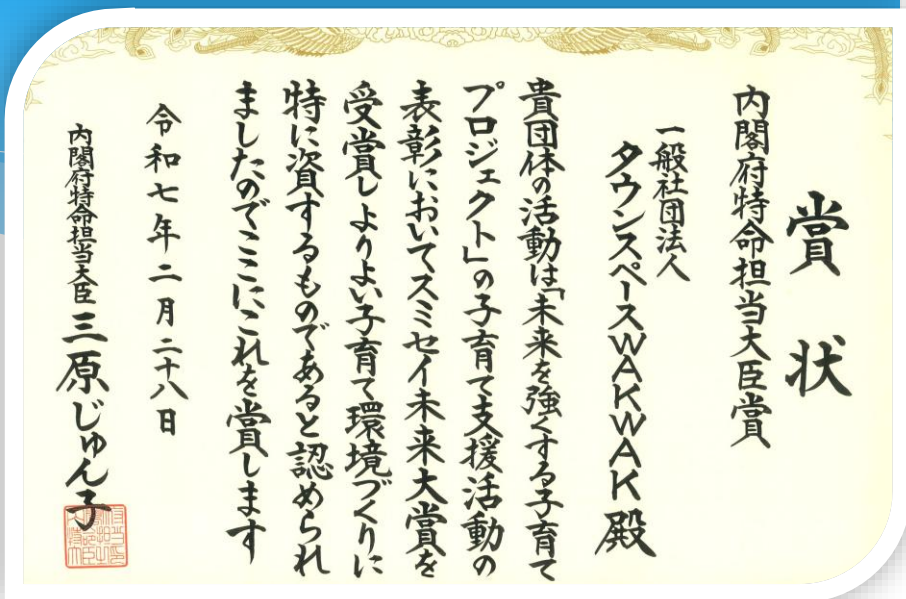 賞状
内閣府特命担当大臣賞
一般社団法人
タウンスペースWAKWAK殿
貴団体の活動は「未来を強くする子育て
プロジェクト」の子育て支援活動の
表彰においてスミセイ未来大賞を
受賞しよりよい子育て環境づくりに
特に資するものであると認められ
ましたのでここにこれを賞します
令和七年二月二十八日
内閣府特命担当大臣 三原じゅん子